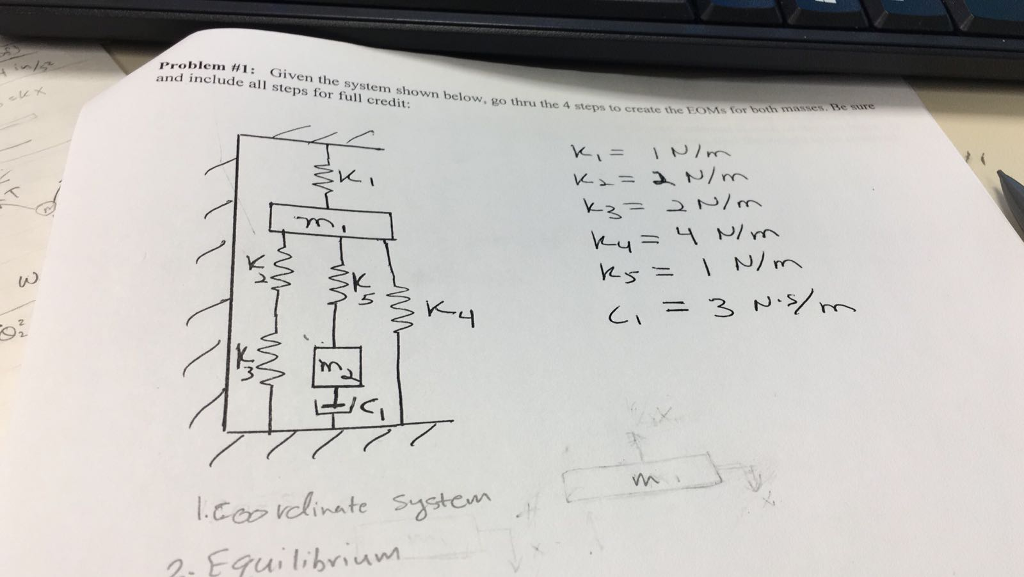 Problem #1: Given the system shown below, go thru the 4 steps to create the EOMs for both masses. Be sure
and include all steps for full credit:
K1
m1
K2
K5
K4
K3
m2
C1
K1 = 1 N/m
K2 = 2 N/m
K3 = 2 N/m
K4 = 4 N/m
K5 = 1 N/m
C1 = 3 N·s/m
m1
x
x1
x
1. Coordinate system
2. Equilibrium
in/s²
W